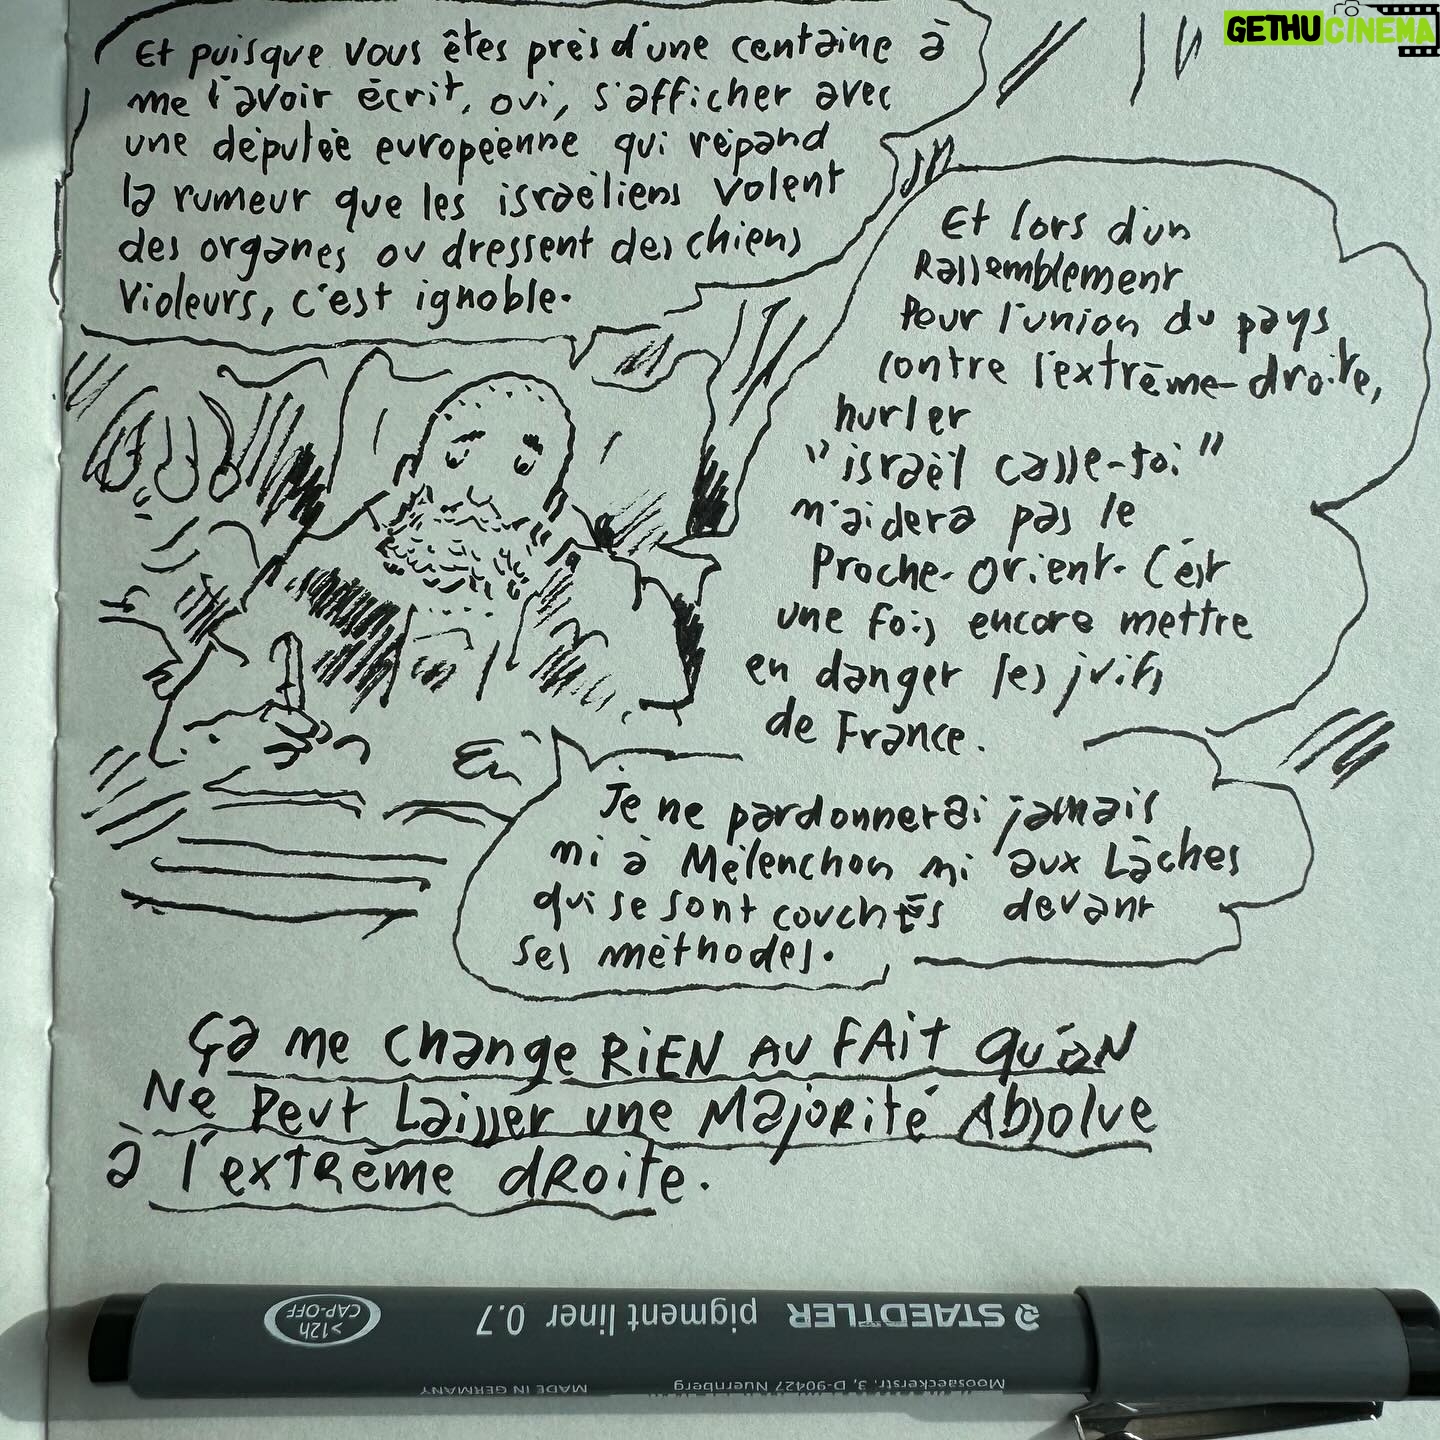 GETHUCINEMA
Et puisque vous êtes près d'une centaine à
me l'avoir écrit, oui, s'afficher avec
une députée européenne qui répand
la rumeur que les israéliens volent
des organes ou dressent des chiens
violeurs, c'est ignoble.
Et lors d'un
Rassemblement
Pour l'union du pays
contre l'extrême-droite,
hurler
"israël casse-toi"
n'aidera pas le
Proche-Orient. C'est
une fois encore mettre
en danger les juifs
de France.
Je ne pardonnerai jamais
ni à Mélenchon ni aux Lâches
qui se sont couchés devant
ses méthodes.
Ça me change RiEN AU FAiT Qu'oN
Ne Peut Laisser une Majorité Absolue
à l'extrême droite.
STAEDTLER pigment liner 0.7
>12h
CAP-OFF
Moosaeckerstr. 3, D-90427 Nuernberg MADE IN GERMANY